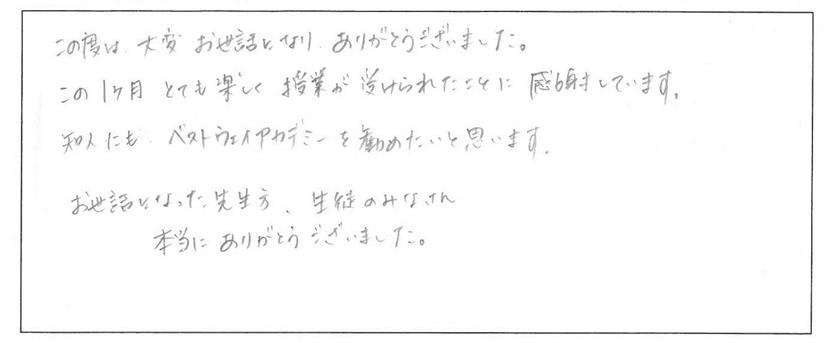 この度は、大変 お世話になり、ありがとうございました。
この1ヶ月 とても楽しく 授業が 受けられたことに 感謝しています。
知人にも、ベストウェイアカデミーを勧めたいと思います。
お世話になった先生方、生徒のみなさん
本当に ありがとう ございました。